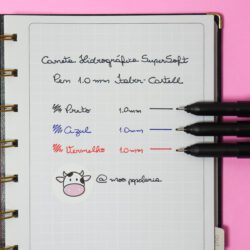 Caneta Hidrográfica SuperSoft
Pen 1.0mm Faber-Castell
Preto 1.0mm
Azul 1.0mm
Vermelho 1.0mm
@moo.papelaria